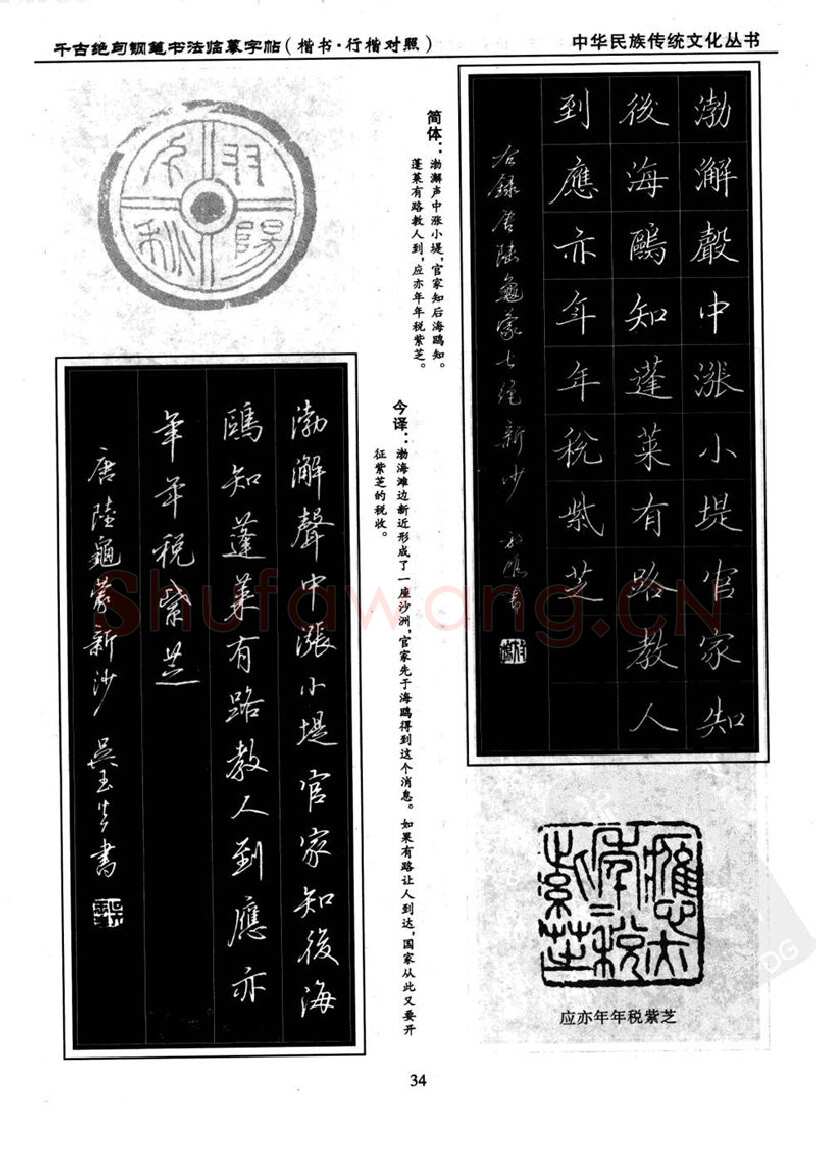 千古绝句钢笔书法临摹字帖(楷书·行楷对照)
中华民族传统文化丛书
渤澥聲中漲小堤官家知
後海鷗知蓬萊有路教人
到應亦年年稅紫芝
右録唐陸龜蒙七绝新沙
简体:渤澥声中涨小堤,官家知后海鸥知。
蓬莱有路教人到,应亦年年税紫芝。
今译:渤海滩边新近形成了一座沙洲,官家先于海鸥得到这个消息。如果有路让人到达,国家从此又要开
征紫芝的税收。
渤澥聲中漲小堤官家知後海
鷗知蓬萊有路教人到應亦
年年稅紫芝
唐陸龜蒙新沙 吳玉生書
應亦年年稅紫芝
应亦年年税紫芝
Shufawang.CN
34